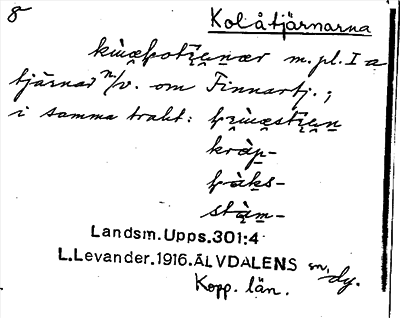 8
Kolåtjärnarna
m. pl. I a
tjärnar n/v. om Finnartj.;
i samma trakt:
kràp-
pàks-
stàm-
Landsm.Upps.301:4
L.Levander.1916.ÄLVDALENS sn, dy.
Kopp. län.